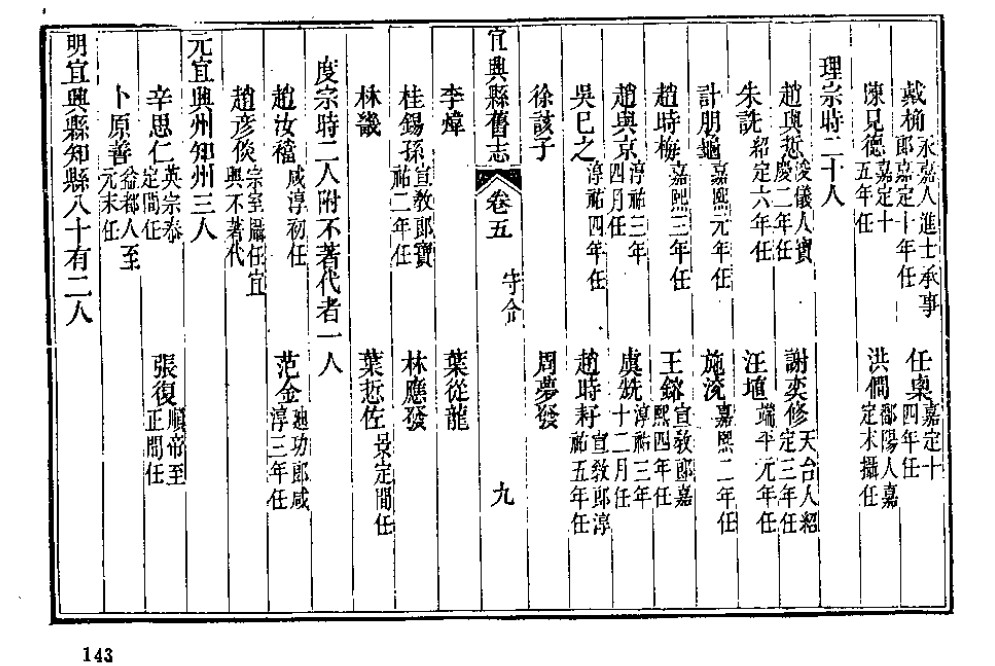 戴桷永嘉人進士承事郎嘉定十年任　任㮚嘉定十四年任
陳兄德嘉定十五年任　洪僩鄱陽人嘉定末攝任
理宗時二十人
趙與悊浚儀人寶慶二年任　謝奕修天台人紹定三年任
朱詵紹定六年任　汪埴端平元年任
計朋龜嘉熙元年任　施嘉熙二年任
趙時嘉熙三年任　王鎔宣教郎嘉熙四年任
趙與京淳祐三年四月任　虞兟淳祐三年十二月任
吳巳之淳祐四年任　趙時耔宣教郎淳祐五年任
徐該子　周夢發
宜興縣舊志　卷五　守令　九
李煒　葉從龍
桂錫孫宣教郎寶祐二年任　林應發
林畿　葉悊佐景定間任
度宗時二人附不著代者一人
趙汝咸淳初任　范金迪功郎咸淳三年任
趙彥倓宗室屬任宜興不著代
元宜興州知州三人
辛思仁英宗泰定間任　張復順帝至正間任
卜原善益都人至元末任
明宜興縣知縣八十有二人
143